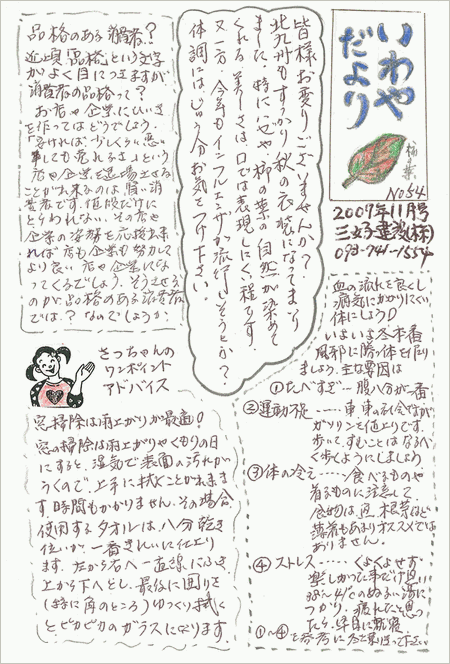 いわや
だより
柿の葉
No54
2009年11月号
三好建設(株)
093-741-1554
皆様お変りございませんか？
北九州もすっかり秋の衣装になってまいり
ました。時に
くれる美しさは口では表現しにくい程です。
又一方、今年もインフルエンザが流行しそうとか？
体調にはじゅう分お気をつけ下さい。
品格のある消費者？
近頃品格という文字
がよく目につきますが
消費者の品格って？
お店や企業にひいき
を作ってはどうでしょう。
「安ければ少しぐらい悪い
事しても売れるよ」という
店や企業を退場させる
ことが出来るのは賢い消
費者です。値段だけに
とらわれない、その店や
企業の姿勢を応援出来
れば店も企業も努力して
より良い店や企業にな
ってくるでしょう。そうさせる
のが品格のある消費者
では？なのでしょうか。
血の流れを良くし
病気にかかりにくい
体にしよう
いよいよ冬本番
風邪に勝つ体を作り
ましょう。主な要因は
①たべすぎ…腹八分が一番
②運動不足……車、車の社会ながら
ガソリンも値上りです。
歩いてすむことはなるべ
く歩くようにしましょう
③体の冷え……食べるものや
着るものに注意して、
食物は魚、根菜など
薄着もあまりオススメでは
ありません。
④ストレス……くよくよせず
楽しかった事だけ思い
38～41℃のぬるい湯に
つかり、疲れたと思っ
たら早目に就寝、
①～④を参考に冬を乗り切って下さい
さっちゃんの
ワンポイント
アドバイス
窓掃除は雨上がりが最適！
窓の掃除は雨上がりやくもりの日
にすると、湿気で表面の汚れが
うくので、上手に拭くことが出来ま
す。時間もかかりません。その場合、
使用するタオルは、八分乾き
位いが一番きれいに仕上り
ます。左から右へ一直線にふき
上から下へとし、最後に回りを
（特に角のところ）ゆっくり拭く
とピカピカのガラスになります。